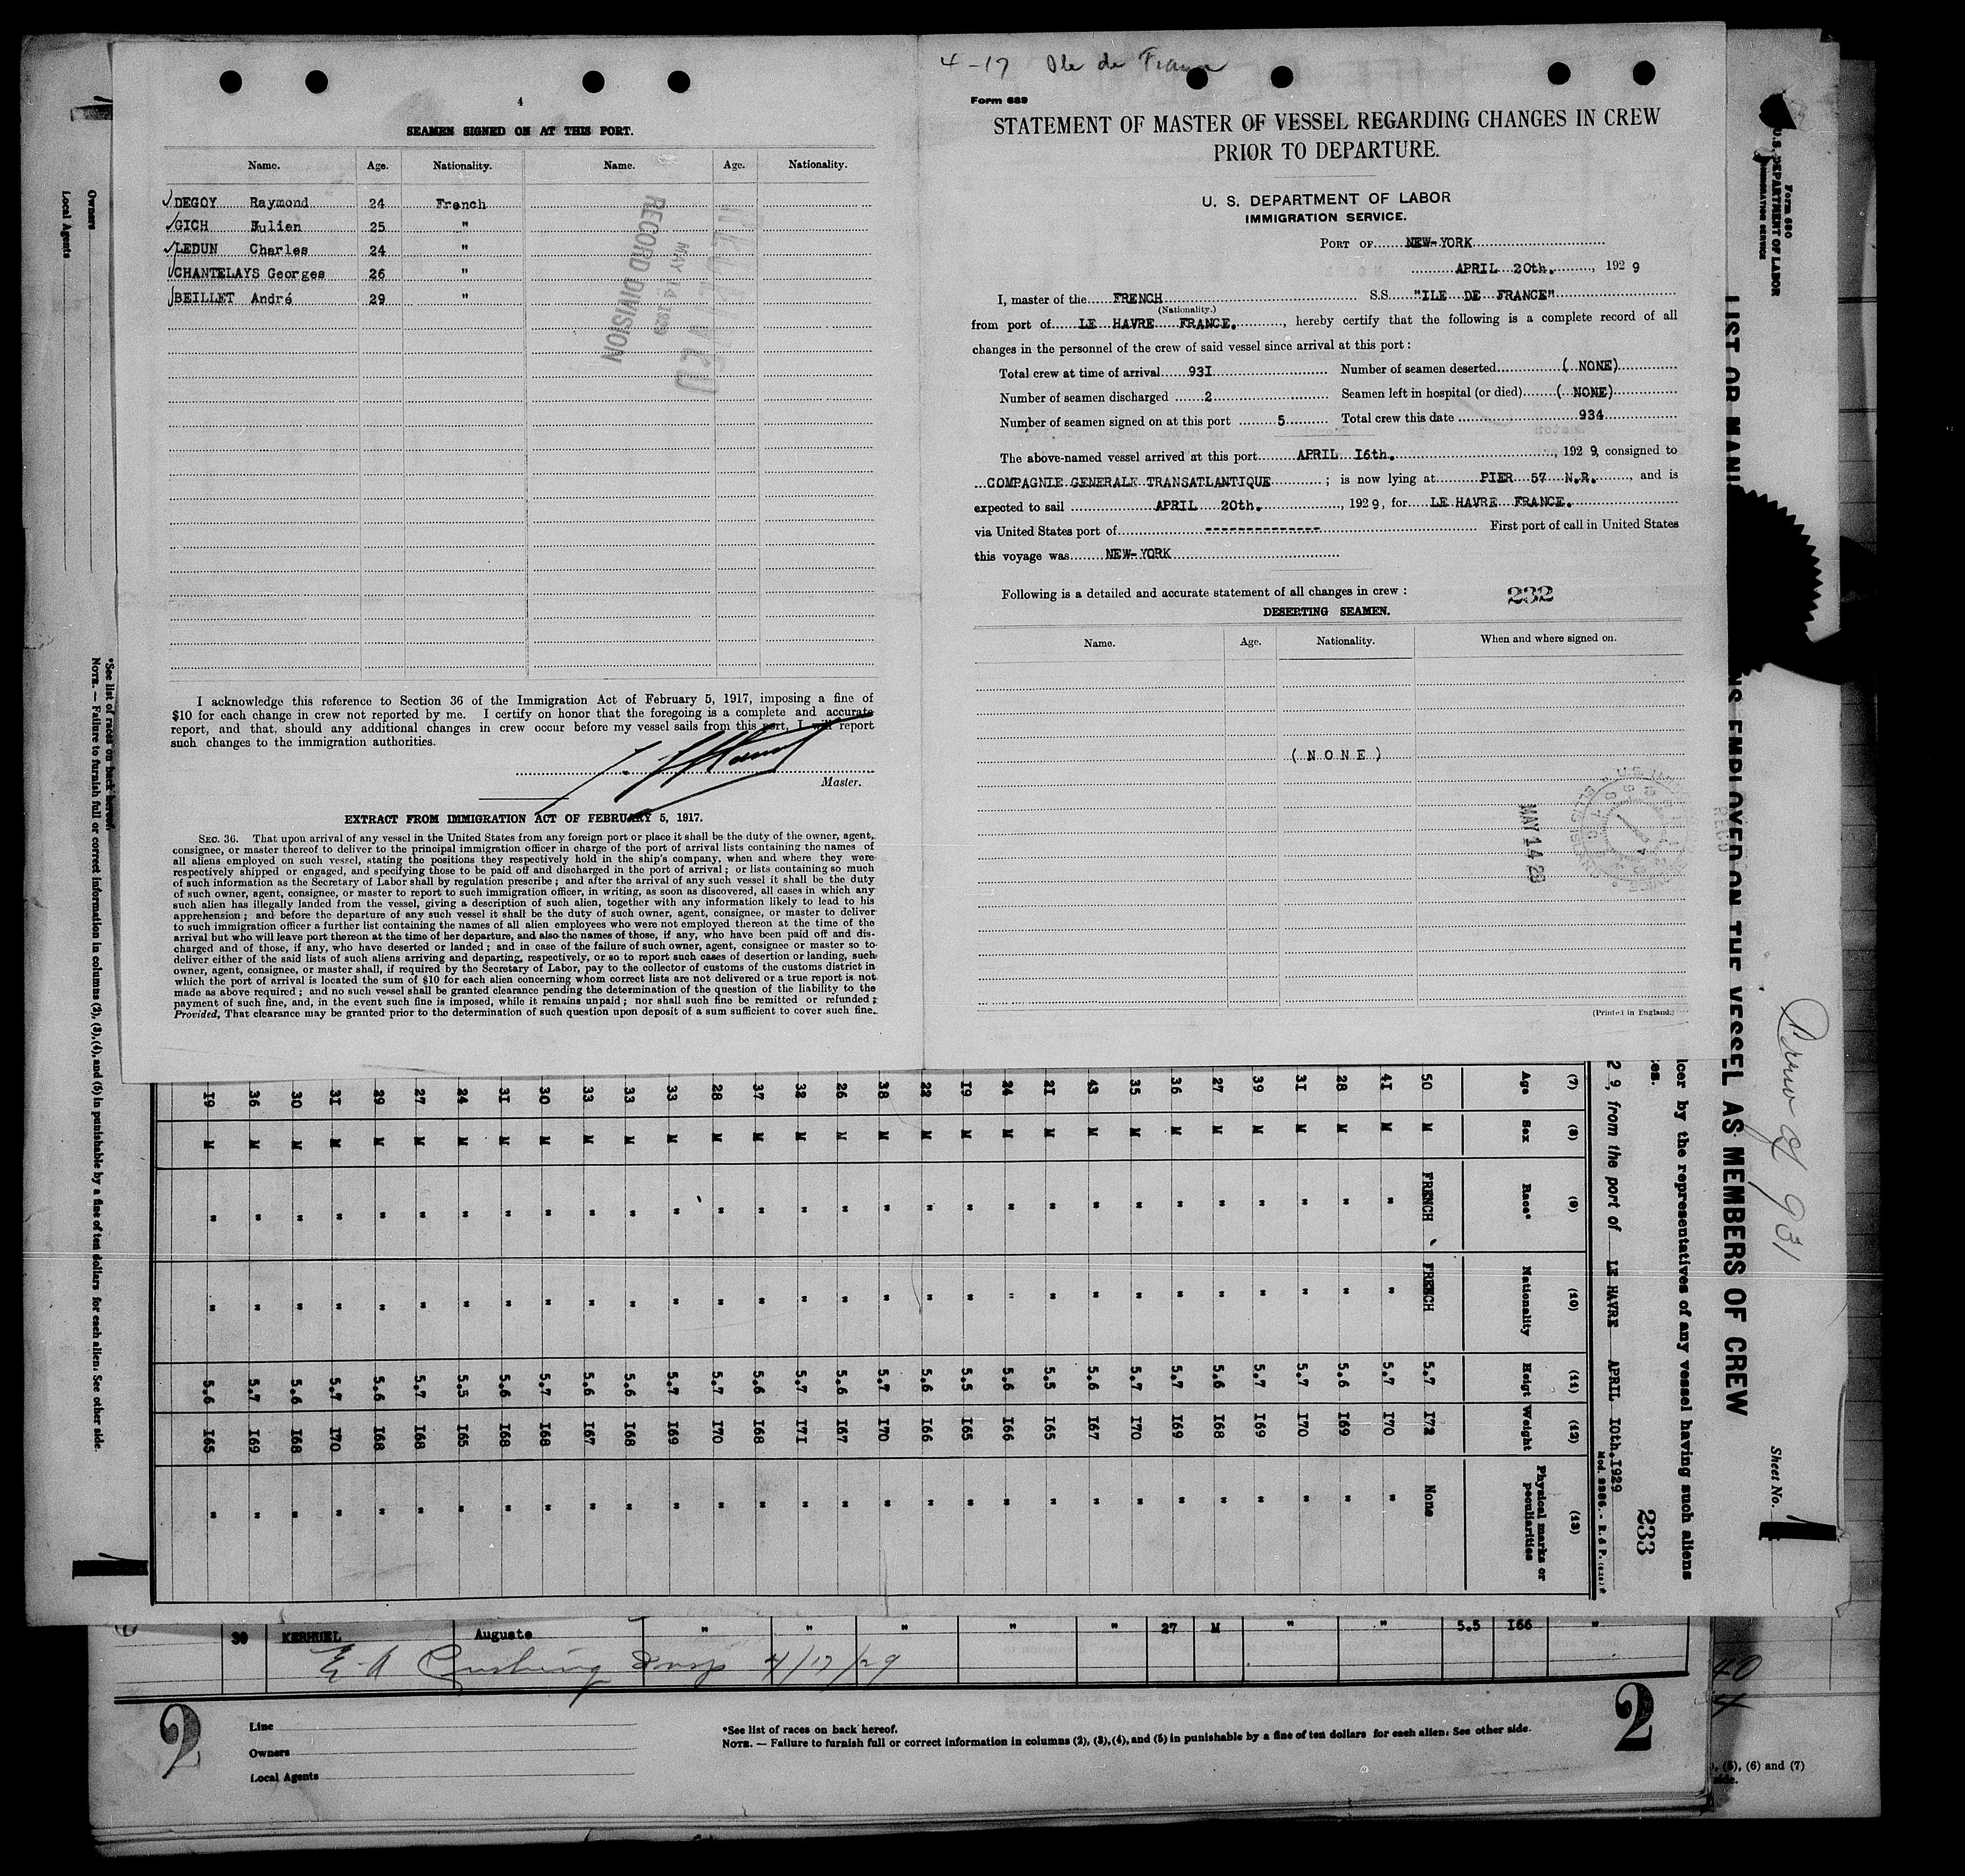 4-17 Ile de France
4
SEAMEN SIGNED ON AT THIS PORT.
Name. Age. Nationality. Name. Age. Nationality.
DEGOY Raymond 24 French
GICH Julien 25 "
LEDUN Charles 24 "
CHANTELAYS Georges 26 "
BEILLET André 29 "
RECEIVED
MAY 14 1929
RECORD DIVISION
I acknowledge this reference to Section 36 of the Immigration Act of February 5, 1917, imposing a fine of
$10 for each change in crew not reported by me. I certify on honor that the foregoing is a complete and accurate
report, and that, should any additional changes in crew occur before my vessel sails from this port, I will report
such changes to the immigration authorities.
Master.
EXTRACT FROM IMMIGRATION ACT OF FEBRUARY 5, 1917.
SEC. 36. That upon arrival of any vessel in the United States from any foreign port or place it shall be the duty of the owner, agent,
consignee, or master thereof to deliver to the principal immigration officer in charge of the port of arrival lists containing the names of
all aliens employed on such vessel, stating the positions they respectively hold in the ship's company, when and where they were
respectively shipped or engaged, and specifying those to be paid off and discharged in the port of arrival; or lists containing so much
of such information as the Secretary of Labor shall by regulation prescribe; and after the arrival of any such vessel it shall be the duty
of such owner, agent, consignee, or master to report to such immigration officer, in writing, as soon as discovered, all cases in which any
such alien has illegally landed from the vessel, giving a description of such alien, together with any information likely to lead to his
apprehension; and before the departure of any such vessel it shall be the duty of such owner, agent, consignee, or master to deliver
to such immigration officer a further list containing the names of all alien employees who were not employed thereon at the time of the
arrival but who will leave port thereon at the time of her departure, and also the names of those, if any, who have been paid off and dis-
charged and of those, if any, who have deserted or landed; and in case of the failure of such owner, agent, consignee or master so to
deliver either of the said lists of such aliens arriving and departing, respectively, or so to report such cases of desertion or landing, such
owner, agent, consignee, or master shall, if required by the Secretary of Labor, pay to the collector of customs of the customs district in
which the port of arrival is located the sum of $10 for each alien concerning whom correct lists are not delivered or a true report is not
made as above required; and no such vessel shall be granted clearance pending the determination of the question of the liability to the
payment of such fine, and, in the event such fine is imposed, while it remains unpaid; nor shall such fine be remitted or refunded;
Provided, That clearance may be granted prior to the determination of such question upon deposit of a sum sufficient to cover such fine.
Form 689
STATEMENT OF MASTER OF VESSEL REGARDING CHANGES IN CREW
PRIOR TO DEPARTURE.
U. S. DEPARTMENT OF LABOR
IMMIGRATION SERVICE.
PORT OF NEW-YORK
APRIL 20th. , 192 9
I, master of the FRENCH S.S. "ILE DE FRANCE"
(Nationality.)
from port of LE HAVRE FRANCE. , hereby certify that the following is a complete record of all
changes in the personnel of the crew of said vessel since arrival at this port:
Total crew at time of arrival 93I Number of seamen deserted ( NONE)
Number of seamen discharged 2 Seamen left in hospital (or died) ( NONE)
Number of seamen signed on at this port 5 Total crew this date 934
The above-named vessel arrived at this port APRIL I6th. , 192 9, consigned to
COMPAGNIE GENERALE TRANSATLANTIQUE ; is now lying at PIER 57 N.R. , and is
expected to sail APRIL 20th. , 192 9, for LE HAVRE FRANCE.
via United States port of --------------- First port of call in United States
this voyage was NEW-YORK
Following is a detailed and accurate statement of all changes in crew :
232
DESERTING SEAMEN.
Name. Age. Nationality. When and where signed on.
( N O N E )
MAY 14 29
(Printed in England.)
Form 680
U.S. DEPARTMENT OF LABOR
IMMIGRATION SERVICE
LIST OR MANI
NS EMPLOYED ON THE VESSEL AS MEMBERS OF CREW
931
Sheet No. 1
icer by the representatives of any vessel having such aliens
233
2 9, from the port of LE HAVRE APRIL I0th.I929
(7) (8) (9) (10) (11) (12) (13)
Age Sex Race* Nationality Heigt Weight Physical marks or peculiarities
50 M FRENCH FRENCH 5.7 I72 None
4I M " " 5.7 I70 "
28 M " " 5.6 I69 "
3I M " " 5.7 I70 "
39 M " " 5.7 I69 "
27 M " " 5.6 I68 "
36 M " " 5.7 I69 "
35 M " " 5.7 I70 "
43 M " " 5.6 I67 "
2I M " " 5.5 I65 "
24 M " " 5.6 I66 "
I9 M " " 5.5 I65 "
22 M " " 5.6 I66 "
38 M " " 5.7 I70 "
26 M " " 5.6 I67 "
32 M " " 5.7 I7I "
37 M " " 5.6 I68 "
28 M " " 5.7 I70 "
33 M " " 5.7 I69 "
33 M " " 5.6 I68 "
33 M " " 5.6 I67 "
30 M " " 5.7 I68 "
3I M " " 5.6 I68 "
24 M " " 5.5 I65 "
27 M " " 5.7 I68 "
29 M " " 5.6 I68 "
3I M " " 5.7 I70 "
30 M " " 5.6 I68 "
36 M " " 5.7 I69 "
I9 M " " 5.6 I65 "
Owners
Local Agents
*See list of races on back hereof.
NOTE. — Failure to furnish full or correct information in columns (2), (3), (4), and (5) in punishable by a fine of ten dollars for each alien. See other side.
30 KERHUEL Auguste " " " " " 27 M " " 5.5 I66 "
E A Cushing Insp 4/17/29
2
Line
Owners
Local Agents
*See list of races on back hereof.
NOTE. — Failure to furnish full or correct information in columns (2), (3), (4), and (5) in punishable by a fine of ten dollars for each alien. See other side.
2
(5), (6) and (7)
side.